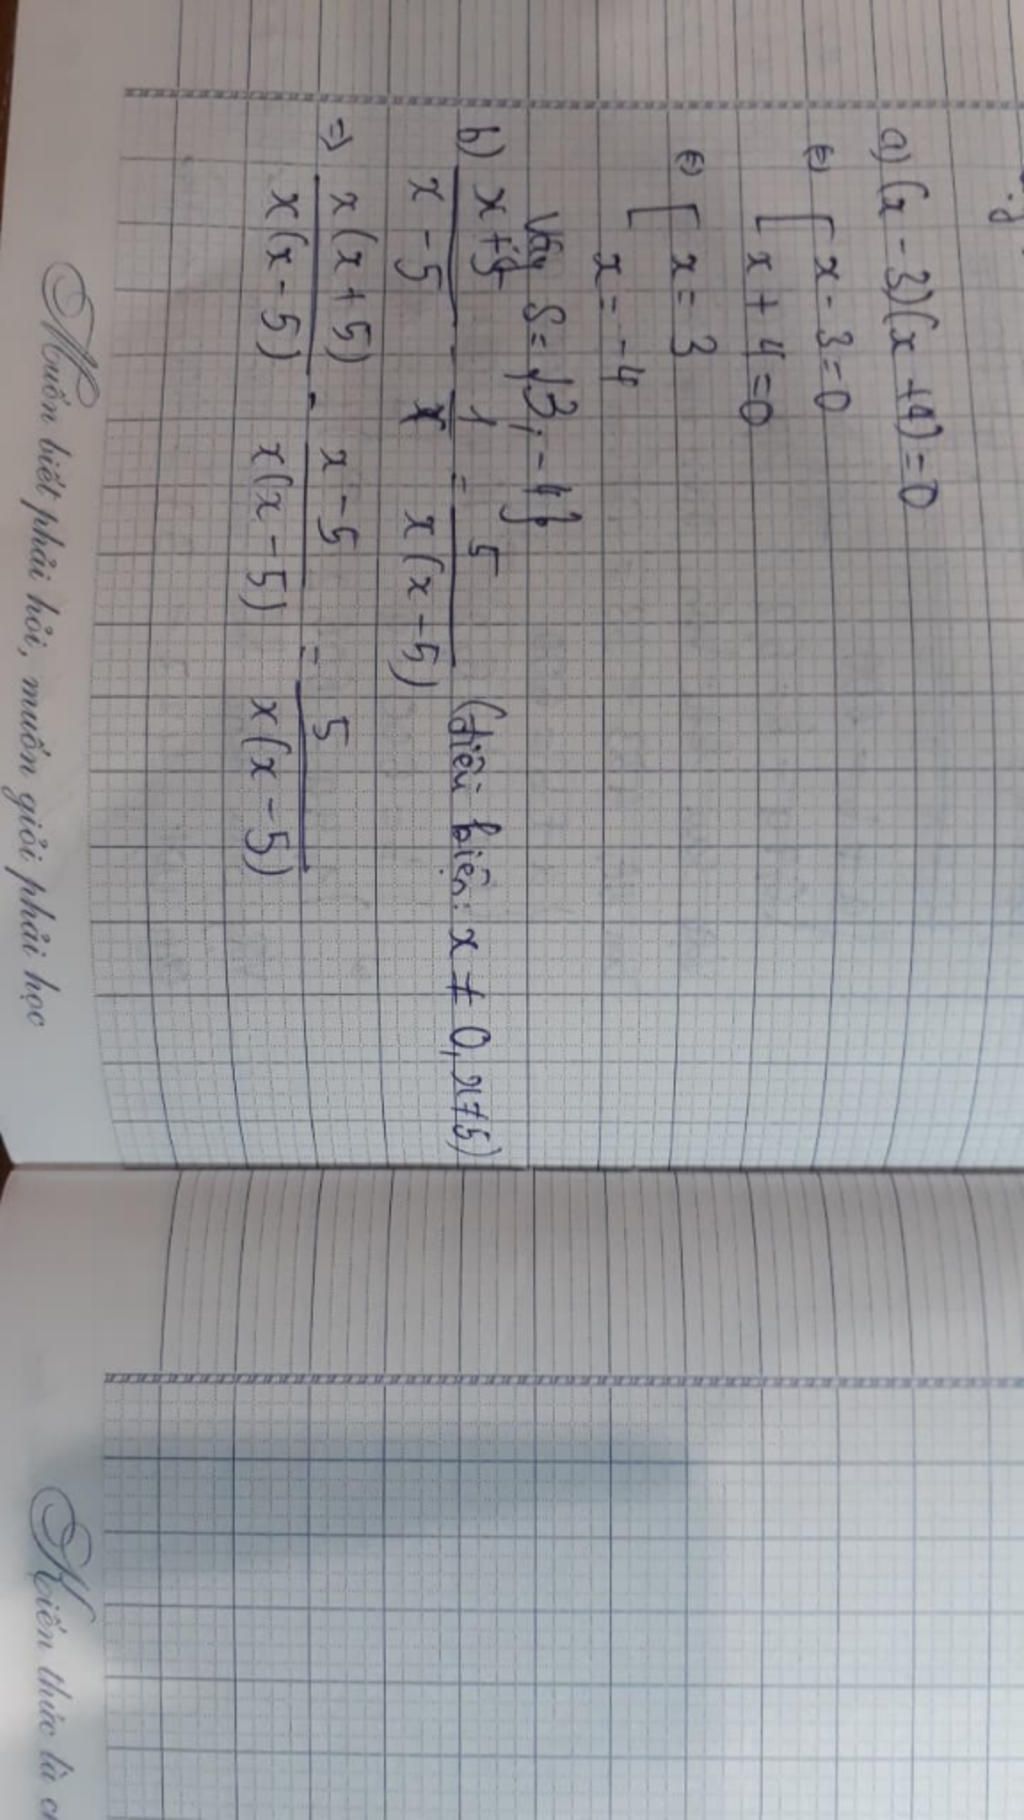 a) (x - 3)(x + 4) = 0
⇔ [ x - 3 = 0
[ x + 4 = 0
⇔ [ x = 3
[ x = -4
Vậy S = {3; -4}
b) x + 5 / x - 5 - 1 / x = 5 / x(x - 5) (điều kiện: x ≠ 0, x ≠ 5)
⇒ x(x + 5) / x(x - 5) - x - 5 / x(x - 5) = 5 / x(x - 5)
Muốn biết phải hỏi, muốn giỏi phải học
Kiến thức là